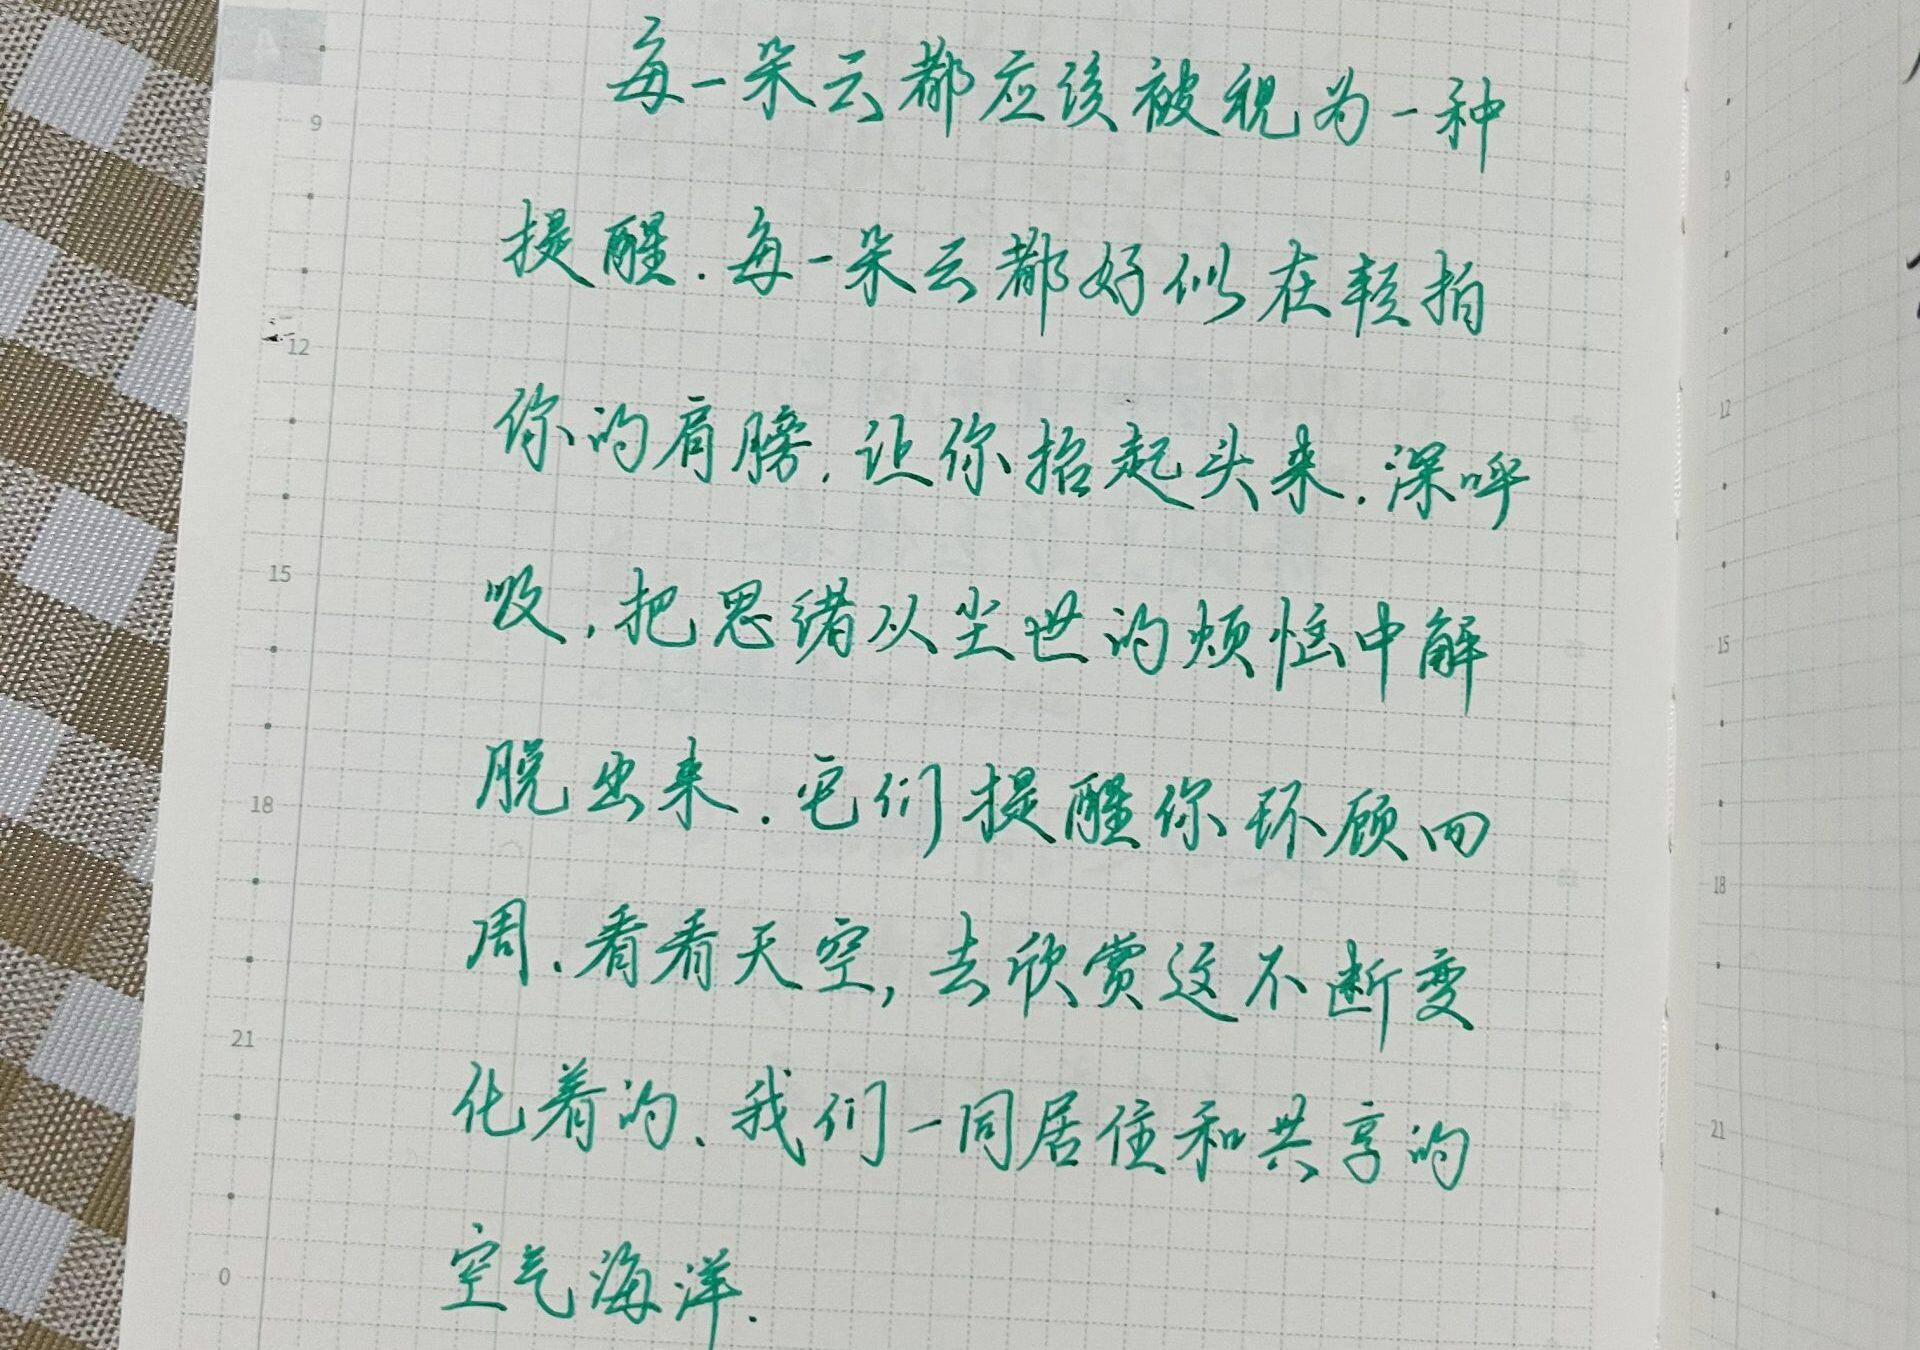 9
每一朵云都应该被视为一种
提醒.每一朵云都好似在轻拍
12
你的肩膀,让你抬起头来.深呼
15
吸,把思绪从尘世的烦恼中解
18
脱出来.它们提醒你环顾四
周.看看天空,去欣赏这不断变
21
化着的、我们一同居住和共享的
0
空气海洋.
9
12
15
18
21